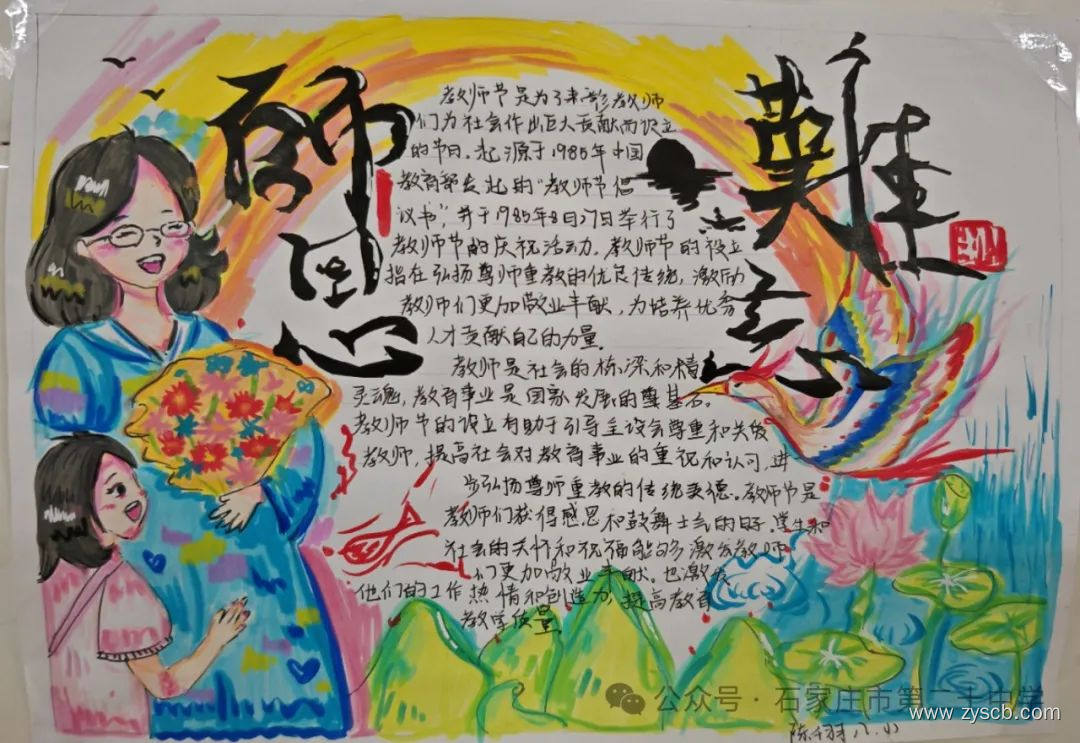 師恩
難忘
教师节是为了表彰教师
们为社会作出巨大贡献而设立
的节日。起源于1985年中国
教育部发起的“教师节倡
议书”，并于1985年8月27日举行了
教师节的庆祝活动。教师节的设立
旨在弘扬尊师重教的优良传统，激励
教师们更加敬业奉献，为培养优秀
人才贡献自己的力量。
教师是社会的栋梁和精
灵魂，教育事业是国家发展的基石。
教师节的设立有助于引导全社会尊重和关爱
教师，提高社会对教育事业的重视和认可，进
步弘扬尊师重教的传统美德。教师节是
教师们获得感恩和鼓舞士气的日子。学生和
社会的关怀和祝福能够激发教师
们更加敬业奉献。也激发
他们的工作热情和创造力，提高教育
教学质量。
公众号·石家庄市第二十中学
www.zyscb.com